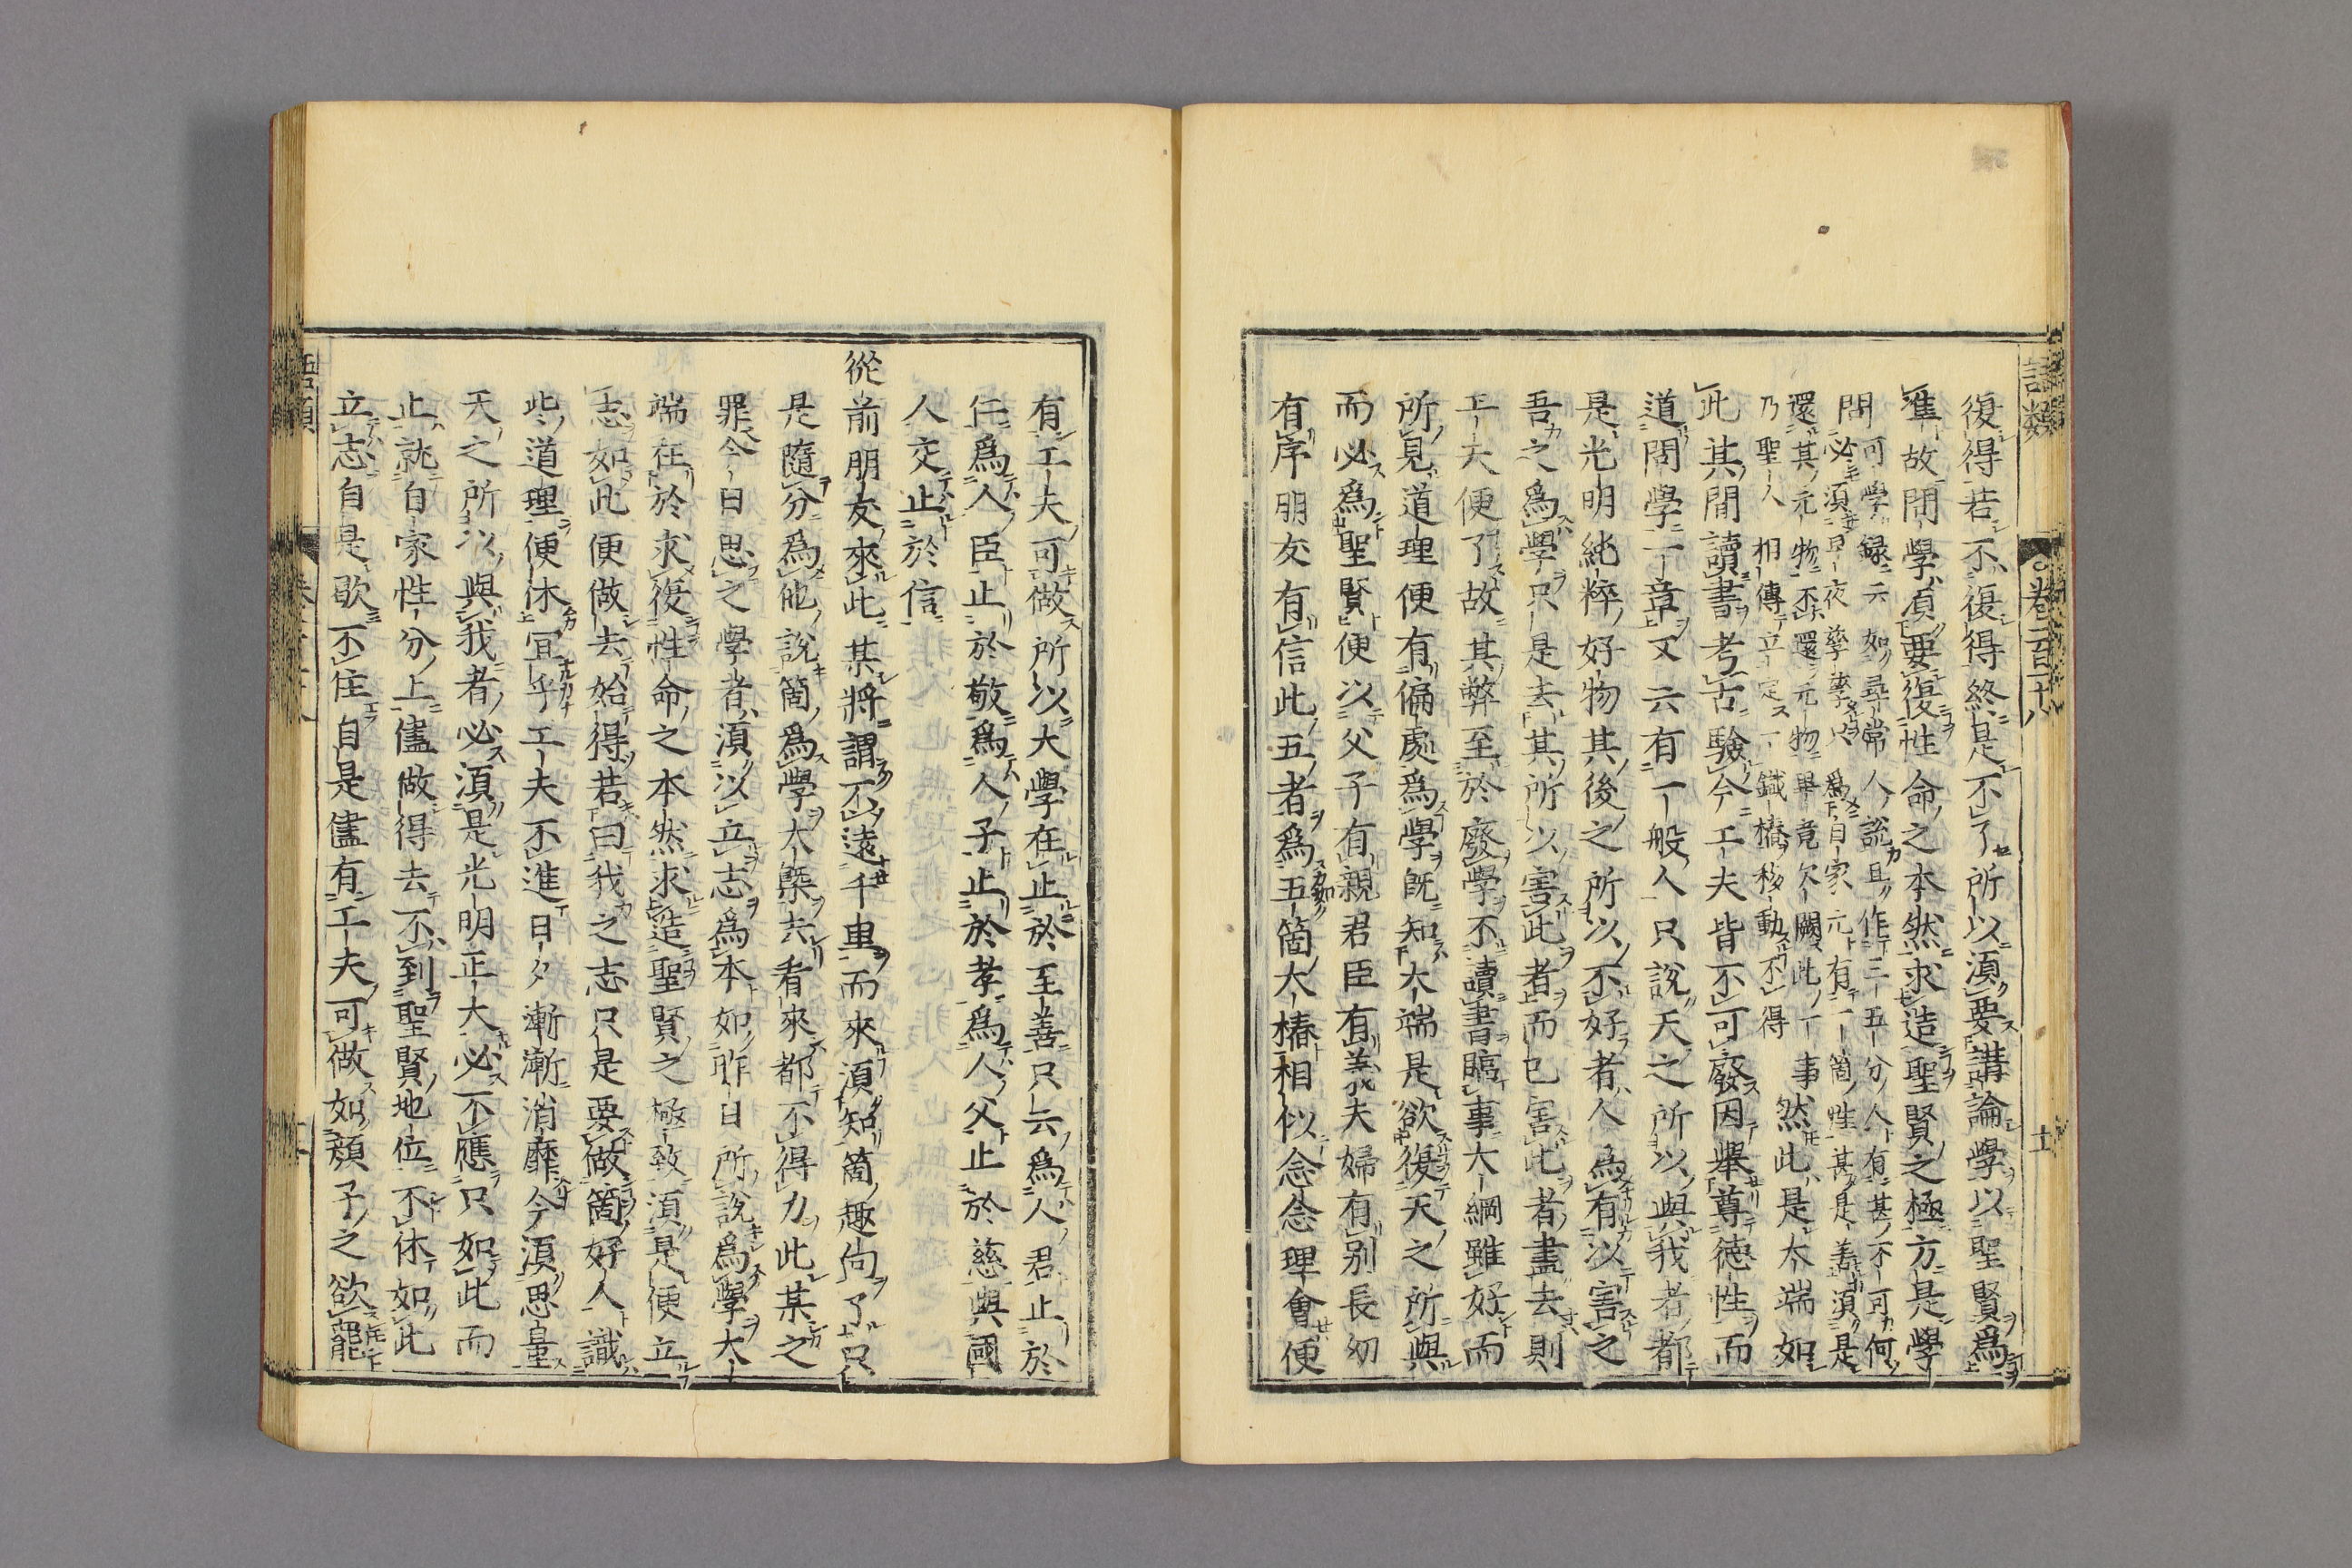 語類
卷一百一十八
十一
復得若不復得終是不了所以須要講論學以聖賢爲
準故問學須要復性命之本然求造聖賢之極方是學
問
可學録云如尋常人說且作三五分人有甚不可何
必須早夜孳孳只爲自家元有一箇性甚是善須是
還其元物不還元物畢竟欠闕此一事
乃聖人相傳立定一鐵樁移動不得
然此是大端如
此其間讀書考古驗今工夫皆不可廢因舉尊德性而
道問學一章又云有一般人只說天之所以與我者都
是光明純粹好物其後之所以不好者人爲有以害之
吾之爲學只是去其所以害此者而已害此者盡去則
工夫便了故其弊至於廢學不讀書臨事大綱雖好而
所見道理便有偏處爲學既知大端是欲復天之所與
而必爲聖賢便以父子有親君臣有義夫婦有別長幼
有序朋友有信此五者爲五箇大樁相似念念理會便
有工夫可做所以大學在止於至善只云爲人君止於
仁爲人臣止於敬爲人子止於孝爲人父止於慈與國
人交止於信
從前朋友來此某將謂不遠千里而來須知箇趣向了只
是隨分爲他說箇爲學大槩去看來都不得力此某之
罪今日思之學者須以立志爲本如昨日所說爲學大
端在於求復性命之本然求造聖賢之極致須是便立
志如此便做去始得若曰我之志只是要做箇好人識
些道理便休宜乎工夫不進日夕漸漸消靡今須思量
天之所以與我者必須是光明正大必不應只如此而
止就自家性分上儘做得去不到聖賢地位不休如此
立志自是歇不住自是儘有工夫可做如顏子之欲罷
語類